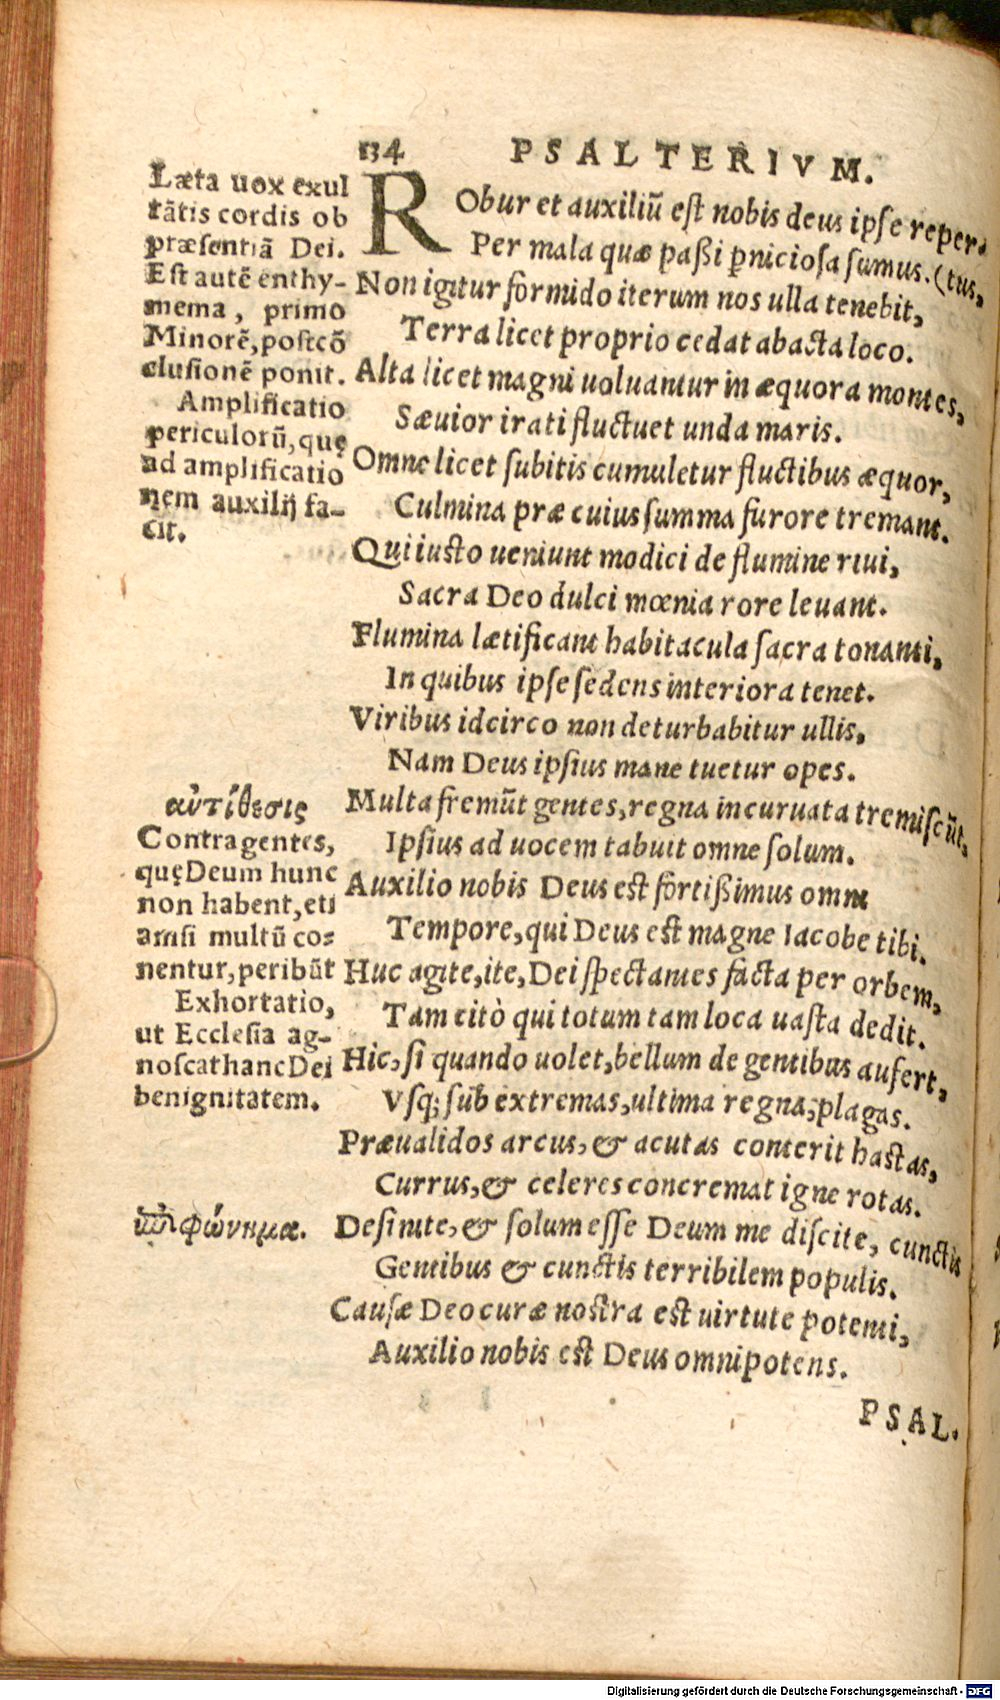 134 PSALTERIVM.
Læta uox exul
tãtis cordis ob
præsentiã Dei.
Est autẽ enthy-
mema, primo
Minorẽ, postcõ
clusionẽ ponit.
Amplificatio
periculorũ, quę
ad amplificatio
nem auxilij fa-
cit.
αὐτίθεσις
Contra gentes,
quę Deum hunc
non habent, eti
amsi multũ co-
nentur, peribũt
Exhortatio,
ut Ecclesia ag-
noscat hanc Dei
benignitatem.
φώνημα.
RObur et auxiliũ est nobis deus ipse reper-
Per mala quæ paßi ꝑniciosa sumus. (tus,
Non igitur formido iterum nos ulla tenebit,
Terra licet proprio cedat abacta loco.
Alta licet magni uoluantur in æquora montes,
Sæuior irati fluctuet unda maris.
Omne licet subitis cumuletur fluctibus æquor,
Culmina præ cuius summa furore tremant.
Qui iusto ueniunt modici de flumine riui,
Sacra Deo dulci mœnia rore leuant.
Flumina lætificant habitacula sacra tonanti,
In quibus ipse sedens interiora tenet.
Viribus idcirco non deturbabitur ullis,
Nam Deus ipsius mane tuetur opes.
Multa fremũt gentes, regna incuruata tremiscũt,
Ipsius ad uocem tabuit omne solum.
Auxilio nobis Deus est fortißimus omni
Tempore, qui Deus est magne Iacobe tibi.
Huc agite, ite, Dei spectantes facta per orbem,
Tam citò qui totum tam loca uasta dedit.
Hic, si quando uolet, bellum de gentibus aufert,
Vsq; sub extremas, ultima regna, plagas.
Præualidos arcus, & acutas conterit hastas,
Currus, & celeres concremat igne rotas.
Desinite, & solum esse Deum me discite, cunctis
Gentibus & cunctis terribilem populis.
Causæ Deo curæ nostra est uirtute potenti,
Auxilio nobis est Deus omnipotens.
PSAL.
Digitalisierung gefördert durch die Deutsche Forschungsgemeinschaft - DFG